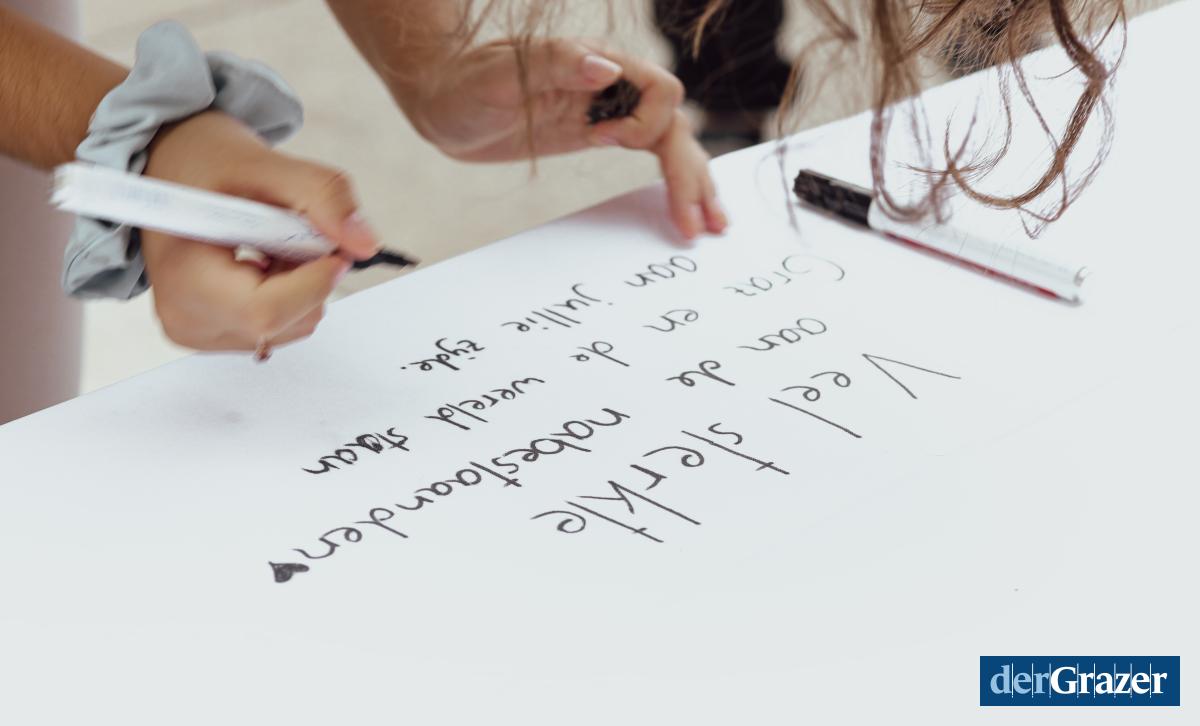 Veel sterkte
aan de nabestaanden ♥
Graz en de wereld staan
aan jullie zijde.
derGrazer